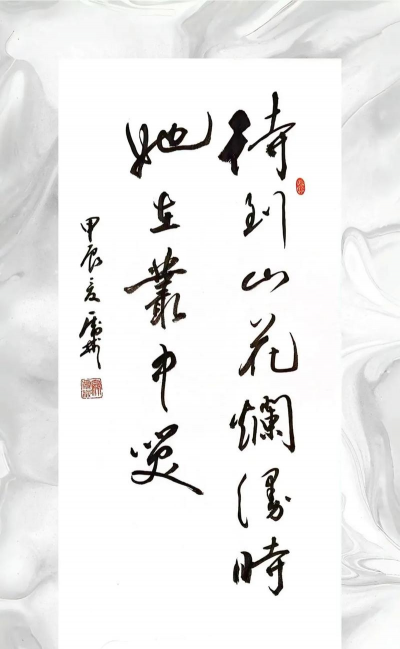 待到山花爛漫時
她在叢中笑
甲辰夏